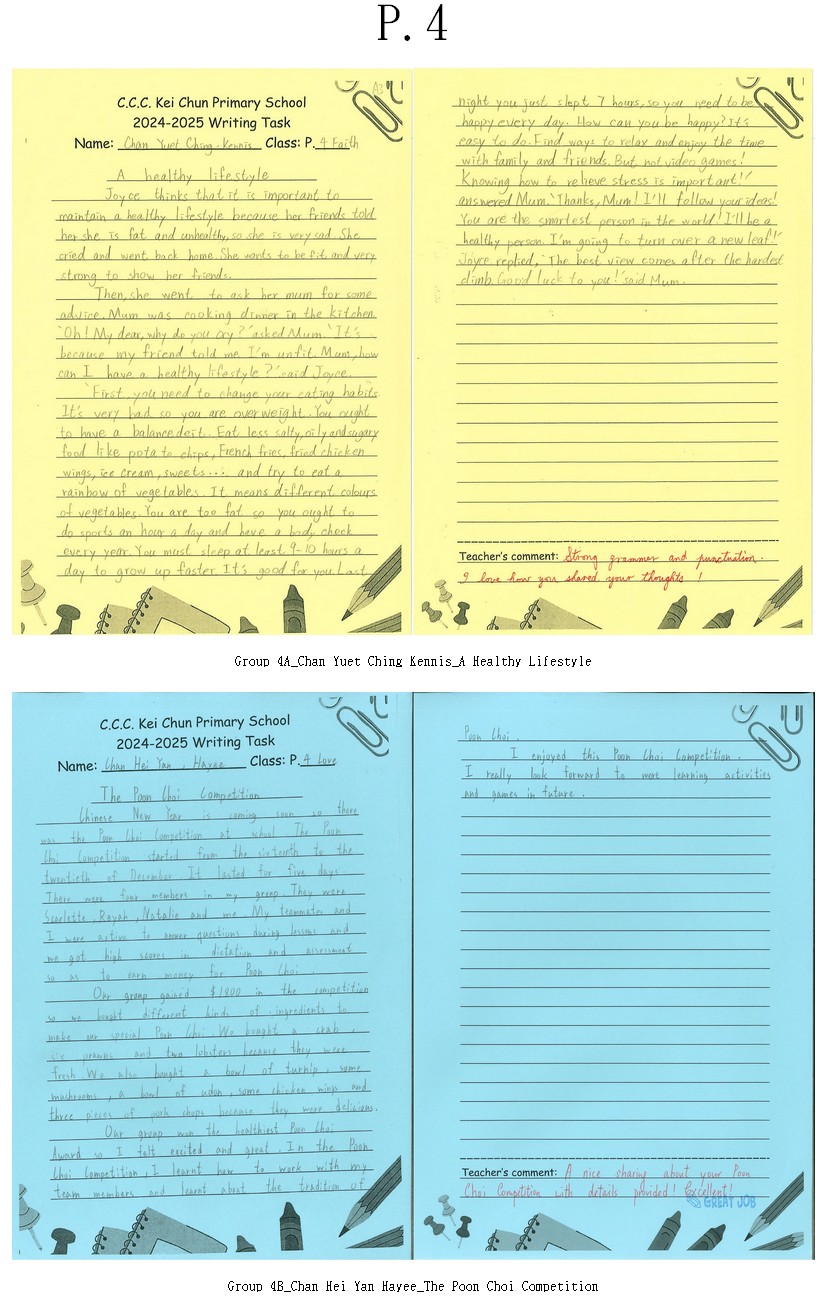 P.4
A3
C.C.C. Kei Chun Primary School
2024-2025 Writing Task
Name: Chan Yuet Ching Kennis Class: P.4 Faith
A healthy lifestyle
Joyce thinks that it is important to
maintain a healthy lifestyle because her friends told
her she is fat and unhealthy, so she is very sad. She
cried and went back home. She wants to be fit and very
strong to show her friends.
Then, she went to ask her mum for some
advice. Mum was cooking dinner in the kitchen.
'Oh! My dear, why do you cry?' asked Mum. 'It's
because my friend told me I'm unfit. Mum, how
can I have a healthy lifestyle?' said Joyce.
'First, you need to change your eating habits.
It's very bad so you are overweight. You ought
to have a balance deit. Eat less salty, oily and sugary
food like potato chips, French fries, fried chicken
wings, ice cream, sweets... and try to eat a
rainbow of vegetables. It means different colours
of vegetables. You are too fat so you ought to
do sports an hour a day and have a body check
every year. You must sleep at least 9-10 hours a
day to grow up faster. It's good for you. Last
night you just slept 7 hours, so you need to be
happy every day. How can you be happy? It's
easy to do. Find ways to relax and enjoy the time
with family and friends. But not video games!
Knowing how to relieve stress is important!'
answered Mum. 'Thanks, Mum! I'll follow your ideas!
You are the smartest person in the world! I'll be a
healthy person. I'm going to turn over a new leaf!'
Joyce replied, 'The best view comes after the hardest
climb. Good luck to you!' said Mum.
Teacher's comment: Strong grammar and punctuation.
I love how you shared your thoughts!
Group 4A_Chan Yuet Ching Kennis_A Healthy Lifestyle
C.C.C. Kei Chun Primary School
2024-2025 Writing Task
Name: Chan Hei Yan, Hayee Class: P.4 Love
The Poon Choi Competition
Chinese New Year is coming soon so there
was the Poon Choi Competition at school. The Poon
Choi Competition started from the sixteenth to the
twentieth of December. It lasted for five days.
There were four members in my group. They were
Scarlette, Rayah, Natalie and me. My teammates and
I were active to answer questions during lessons and
we got high scores in dictation and assessment
so as to earn money for Poon Choi.
Our group gained $1900 in the competition
so we bought different kinds of ingredients to
make our special Poon Choi. We bought a crab,
six prawns and two lobsters because they were
fresh. We also bought a bowl of turnip, some
mushrooms, a bowl of udon, some chicken wings and
three pieces of pork chops because they were delicious.
Our group won the healthiest Poon Choi
Award so I felt excited and great. In the Poon
Choi Competition, I learnt how to work with my
team members and learnt about the tradition of
Poon Choi.
I enjoyed this Poon Choi Competition.
I really look forward to more learning activities
and games in future.
Teacher's comment: A nice sharing about your Poon
Choi Competition with details provided! Excellent!
GREAT JOB
Group 4B_Chan Hei Yan Hayee_The Poon Choi Competition